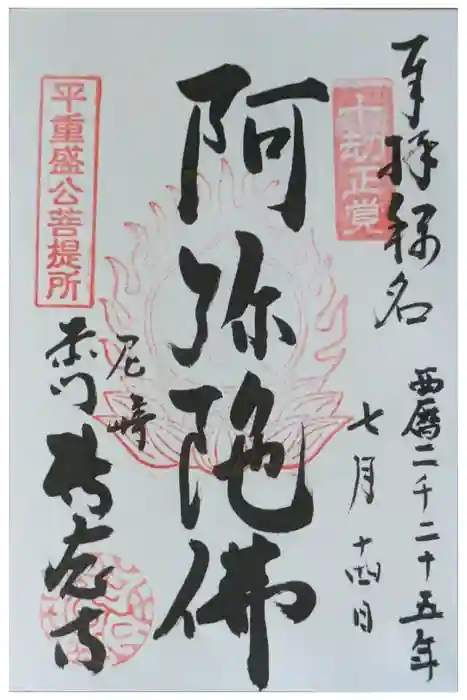 奉拝称名
西暦二千二十五年
七月十四日
十劫正覚
阿弥陀佛
平重盛公菩提所
尼崎
赤門 專念寺